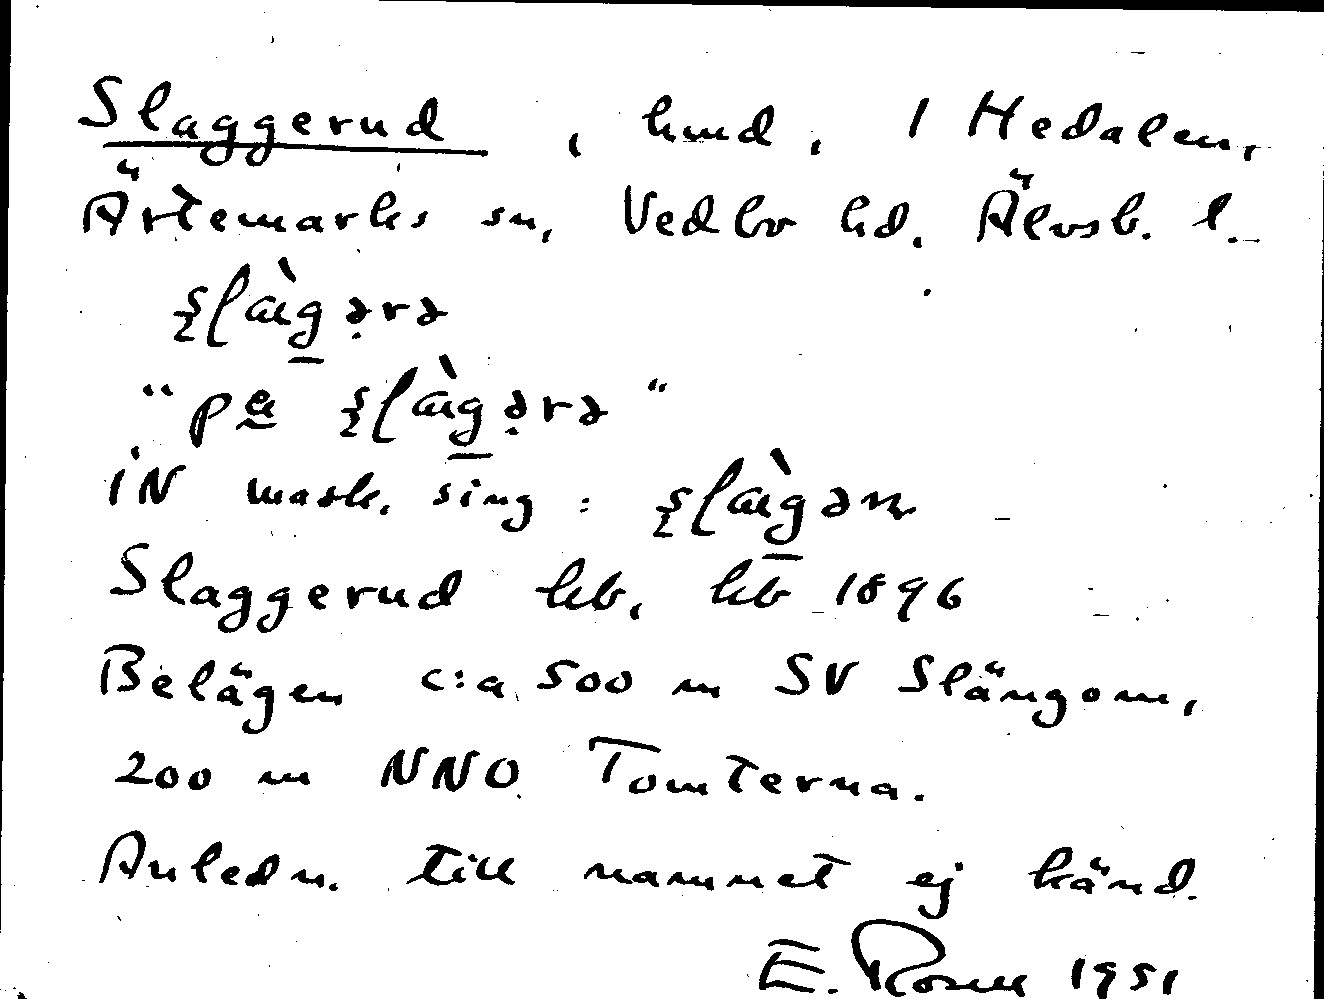 Slaggerud, hmd, i Hedalen,
Ärtemarks sn, Vedbo hd. Älvsb. l.
ʂlàgərə
"pa ʂlàgərə"
IN mask. sing: ʂlàgən
Slaggerud hb, kb 1896
Belägen c:a 500 m SV Slängom,
200 m NNO Tomterna.
Anledn. till namnet ej känd.
E. Rosell 1951